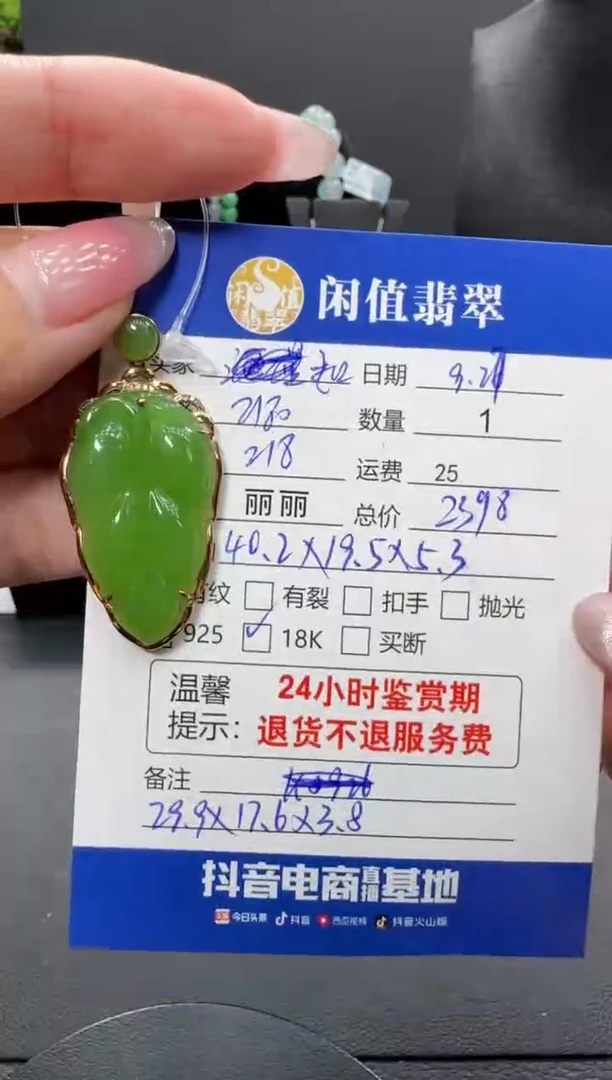 闲值翡翠
买家 日期 9.21
2180 数量 1
218 运费 25
丽丽 总价 2398
40.2X19.5X5.3
纹 有裂 扣手 抛光
925 18K 买断
温馨 24小时鉴赏期
提示: 退货不退服务费
备注
29.9X17.6X3.8
抖音电商直播基地
今日头条 抖音 西瓜视频 抖音火山版